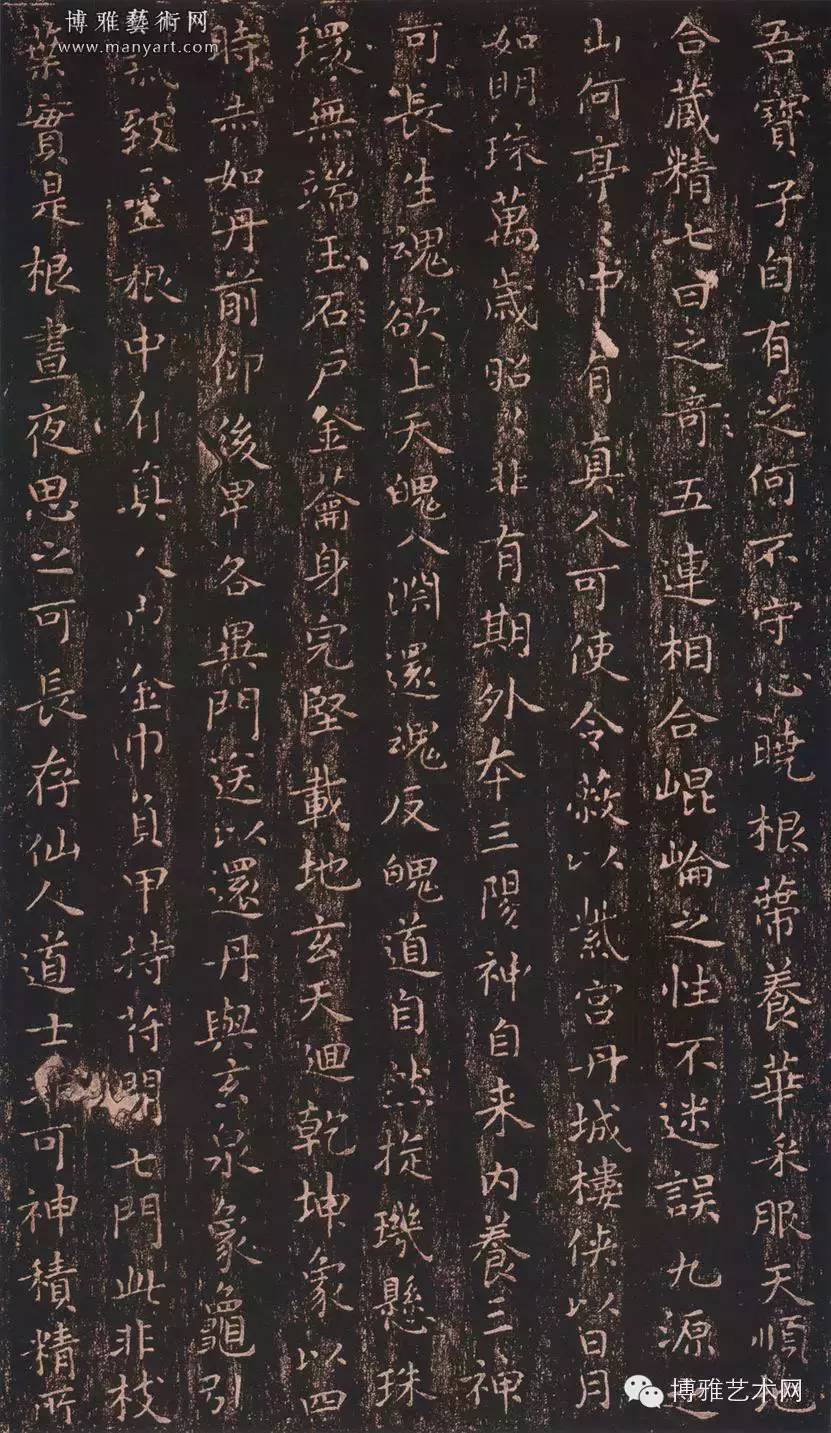 博雅藝術网
www.manyart.com
吾寶子自有之何不守心曉根蔕養華采服天順
合藏精七日之奇五連相合崐崘之性不迷誤九源之
山何亭〻中有真人可使令蔽以紫宫丹城樓侠以日月
如明珠萬歲昭〻非有期外本三陽神自来内養三神
可長生魂欲上天魄入淵還魂反魄道自然㨁璣懸珠
環無端玉石戸金蘥身完堅載地玄天迴乾坤象以四
時赤如丹前仰後卑各異門送以還丹與玄泉象龜引
氣致靈根中有真人巾金巾負甲持苻開七門此非枝
葉實是根晝夜思之可長存仙人道士可神積精所
博雅艺术网